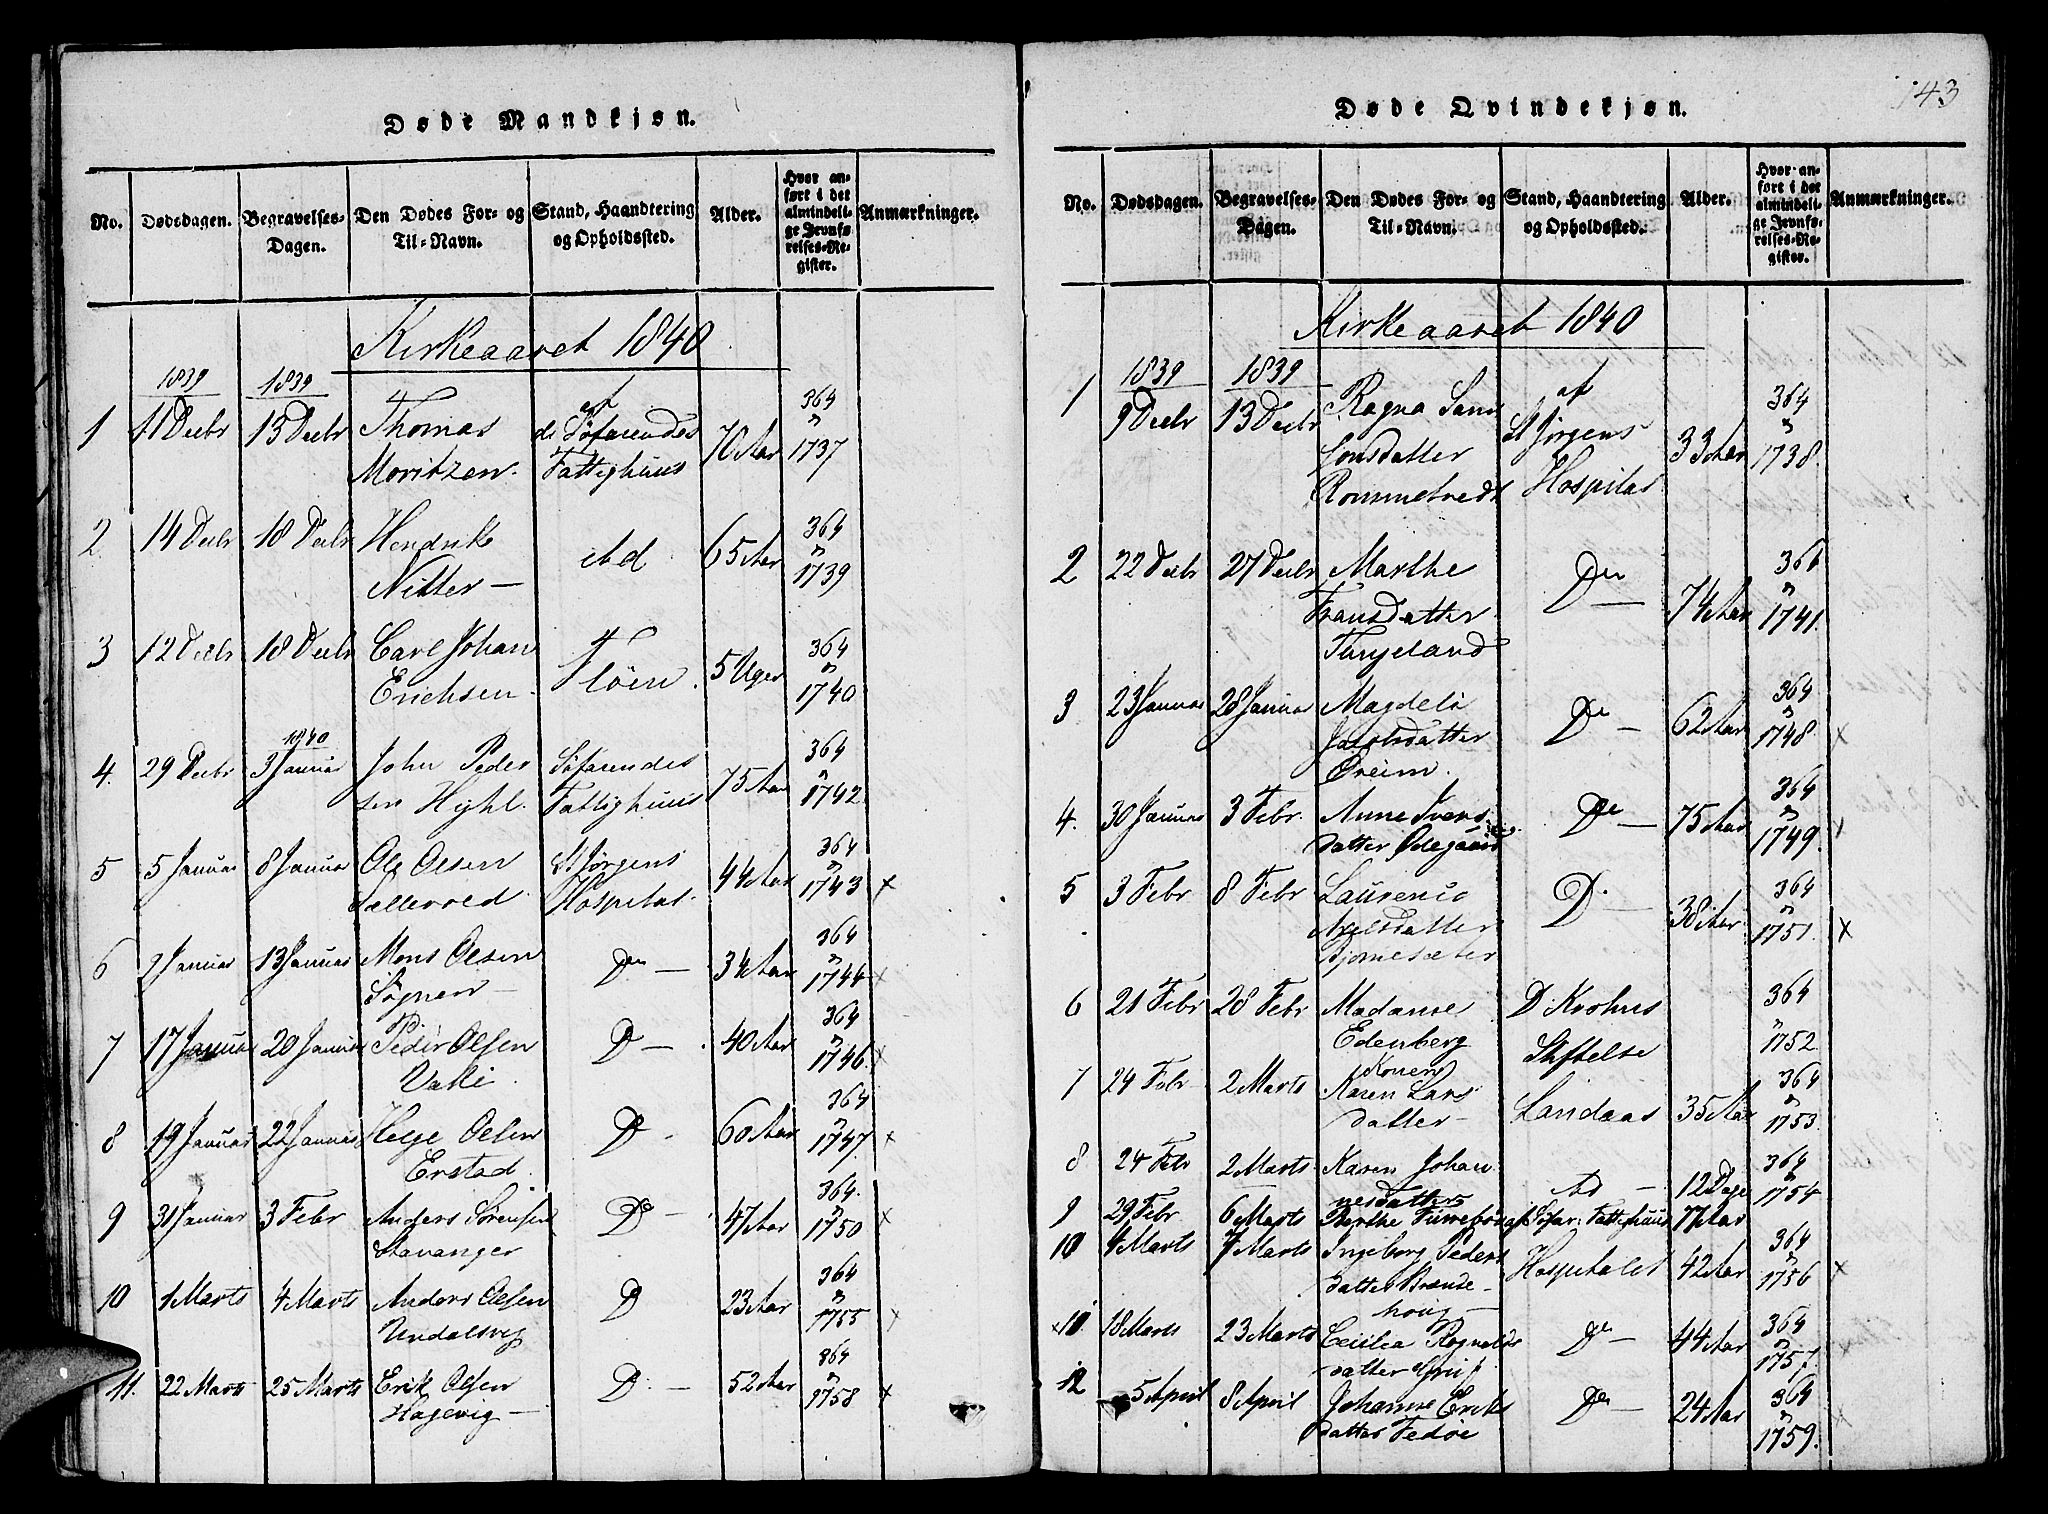 Døde Mandkjøn.
No. Dødsdagen. Begravelses-Dagen. Den Dødes For- og Til-Navn. Stand, Haandtering og Opholdssted. Alder. Hvor anført i det almindelige Jevnførelses-Register. Anmærkninger.
Kirkeaaret 1840
1839 1839
1 11 Decbr 13 Decbr Thomas Moritzen. af de Søfarendes Fattighuus 70 Aar 364 n 1737
2 14 Decbr 18 Decbr Hendrik Nitter — ibd 65 Aar 364 n 1739
3 12 Decbr 18 Decbr Carl Johan Erichsen. Fløen. 5 Uger 364 n 1740
1840
4. 29 Decbr 3 Januar John Peder sen Hyhl. Søfarendes Fattighuus 75 Aar 364 n 1742
5 5 Januar 8 Januar Ole Olsen Sallevold St Jørgens Hospital. 44 Aar 364 n 1743 x
6 9 Januar 13 Januar Mons Olsen Sognen — Do — 34 Aar 364 n 1744 x
7 17 Januar 20 Januar Peder Olsen D — 40 Aar 364 n 1746 x
8 19 Januar 22 Januar Helge Olsen Erstad. D - 60 Aar 364 n 1747. x
9 30 Januar 3 Febr Anders Sørensen Stavanger Do - 47 Aar 364. n 1750 x
10 1 Marts 4 Marts Anders Olsen Undalsvig D 23 Aar 364 n 1755 x
11. 22 Marts 25 Marts Erik Olsen Hagevig — D. — 52 Aar 364 n 1758 x
143
Døde Qvindekjøn.
No. Dødsdagen. Begravelses-Dagen. Den Dødes For- og Til-Navn. Stand, Haandtering og Opholdssted. Alder. Hvor anført i det almindelige Jevnførelses-Register. Anmærkninger.
Kirkeaaret 1840
1839 1839
1 9 Decbr 13 Decbr Ragna Sam sonsdatter Rommetvedt af St Jørgens Hospital 33 Aar 364 n 1738.
2 22 Decbr 27 Decbr Marthe Fransdatter Tungeland Do — 74 Aar 364 n 1741.
3 23 Januar 28 Januar Magdele Jacobsdatter Øreim. Do — 62 Aar 364 n 1748 x
4. 30 Januar 3 Febr. Anne Ivers datter Ødegaard Do — 75 Aar 364 n 1749. x
5 3 Febr 8 Febr Laurence Axelsdatter Bjornesæter D. — 38 Aar 364 n 1751. x
6 21 Febr 28 Febr Madamme Edenberg D. Krohns Stiftelse 364 n 1752.
7 24 Febr 2 Marts Konen Karen Lars datter — Landaas 35 Aar 364 n 1753.
8 24 Febr 2 Marts Karen Johan nesdatter ibd — 12 Dage 364 n 1754
9 29 Febr 6 Marts Berthe Søfar: Fattighuus 77 Aar
10 4 Marts 7 Marts Ingeborg Peders datter Brænde houg — Hospitalet 42 Aar 364 n 1756 x
x 11. 18 Marts 23 Marts Cecilia Rognalds datter Do — 44 Aar 364 n 1757. x
12 5 April 8 April Johanne Eriks datter Fedøe Do — 24 Aar 364 n 1759. x